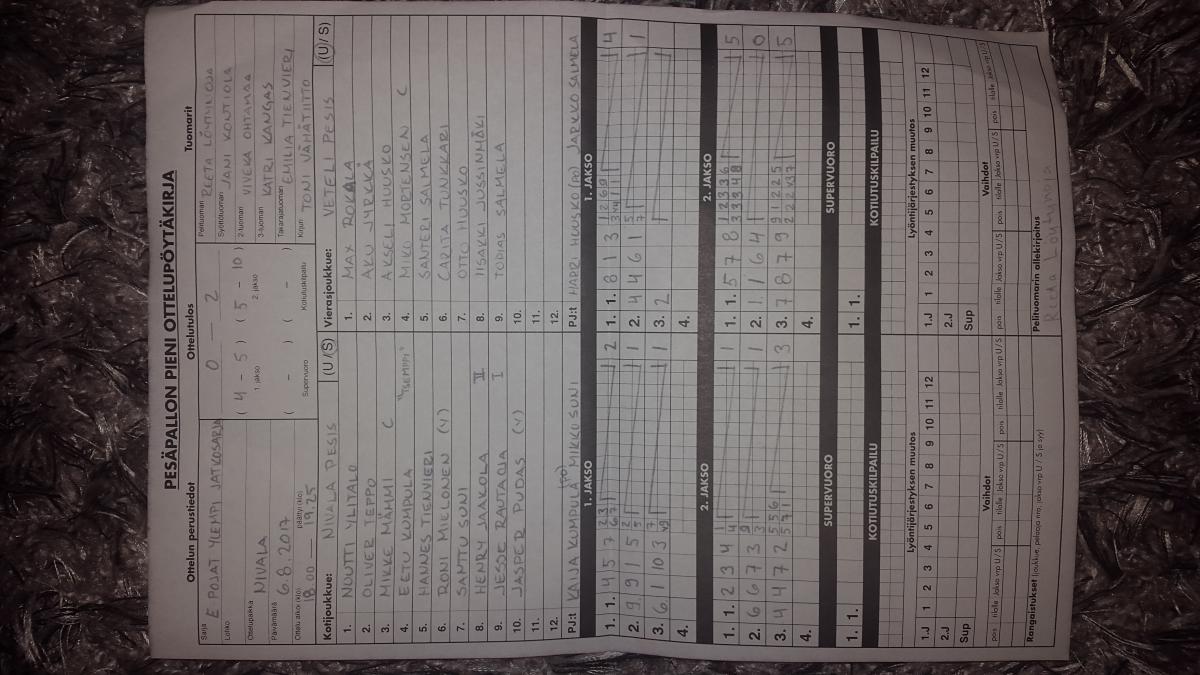 PESÄPALLON PIENI OTTELUPÖYTÄKIRJA
Ottelun perustiedot
Ottelutulos
Tuomarit
Sarja E POJAT YLEMPI JATKOSARJA
Lohko
Ottelupaikka NIVALA
Päivämäärä 6.8.2017
Ottelu alkoi (klo) 18.00 — päättyi (klo) 19.25
0 — 2
( 4 - 5 ) ( 5 - 10 )
1. jakso 2. jakso
( - ) ( - )
Supervuoro Kotiutuskilpailu
Pelituomari REETA
Syöttötuomari JANI KONTIOLA
2-tuomari VIVEKA OHTAMAA
3-tuomari KATRI KANGAS
Takarajatuomari EMILIA TIENVIERI
Kirjuri TONI VÄHÄTIITTO
Kotijoukkue: NIVALA PESIS (U/S)
1. NUUTTI YLITALO
2. OLIVER TEPPO
3. MIKKE MÄMMI C
4. EETU KUMPULA "TSEMPPI"
5. HANNES TIENVIERI
6. RONI MIELONEN (V)
7. SANTTU SUNI
8. HENRY JAAKOLA II
9. JESSE RAUTAOJA I
10. JASPER PUDAS (V)
11.
12.
PJ:t KAIJA KUMPULA (PO) MIKKO SUNI
Vierasjoukkue: VETELI PESIS (U/S)
1. MAX ROKALA
2. AKU JYRKKÄ
3. AKSELI HUUSKO
4. MIKO MORTENSEN C
5. SANTERI SALMELA
6. CARITA TUNKKARI
7. OTTO HUUSKO
8. IISAKKI JUSSINMÄKI
9. TOPIAS SALMELA
10.
11.
12.
PJ:t HARRI HUUSKO (PO) JARKKO SALMELA
1. JAKSO
1. 1. 4 5 7 2
2. 9 9 1 5 1
3. 6 1 10 3 1
4.
1. JAKSO
1. 1. 8 1 3 4
2. 4 4 6 1 1
3. 2 1
4.
2. JAKSO
1. 1. 2 3 4 1
2. 6 6 7 3 1
3. 4 4 7 2 3
4.
2. JAKSO
1. 1. 5 7 8 5
2. 1 1 6 4 0
3. 7 8 7 9 5
4.
SUPERVUORO
1. 1.
SUPERVUORO
1. 1.
KOTIUTUSKILPAILU
KOTIUTUSKILPAILU
Lyöntijärjestyksen muutos
1.J 1 2 3 4 5 6 7 8 9 10 11 12
2.J
Sup
Lyöntijärjestyksen muutos
1.J 1 2 3 4 5 6 7 8 9 10 11 12
2.J
Sup
Vaihdot
pois tilalle Jakso vrp U/S pois tilalle Jakso vrp U/S pois tilalle Jakso vrp U/S
Vaihdot
pois tilalle Jakso vrp U/S pois tilalle Jakso vrp U/S pois tilalle Jakso vrp U/S
Rangaistukset (joukkue, pelaaja nro, jakso vrp U / S ja syy)
Pelituomarin allekirjoitus